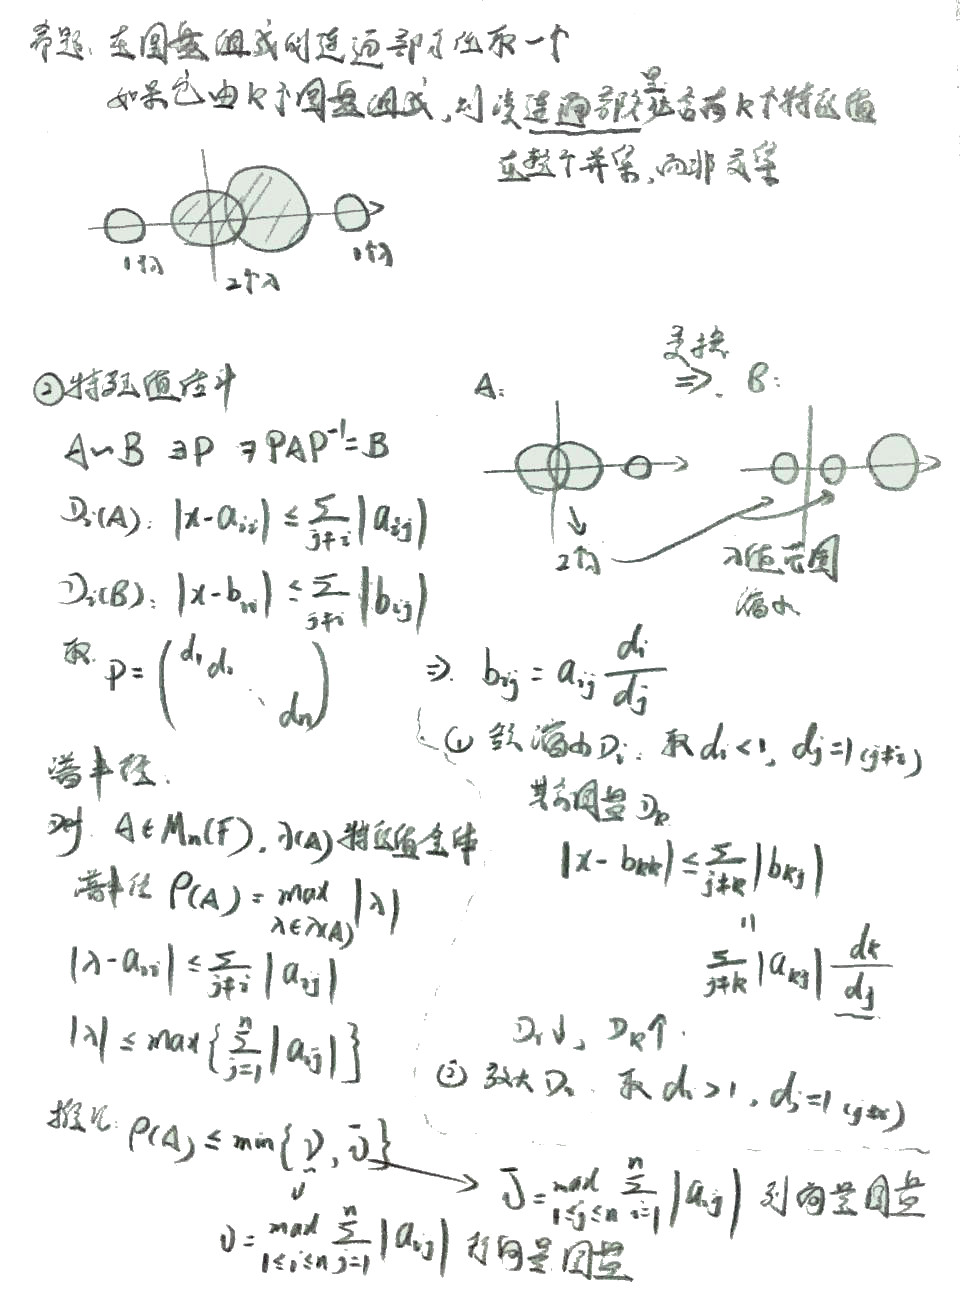 希题: 在圆盘组成的连通部分任取一个
如果它由k个圆盘组成,则该连通部分里必含有k个特征值
在整个并集,而非交集
1个λ
2个λ
1个λ
② 特征值估计
A∽B ∃P ∋ PAP⁻¹=B
Dᵢ(A): |x-aᵢᵢ| ≤ Σ_{j≠i} |aᵢⱼ|
Dᵢ(B): |x-bᵢᵢ| ≤ Σ_{j≠i} |bᵢⱼ|
取 P = ( d₁ d₂ ⋱ dₙ )
A:
变换
⇒. B:
2个λ
λ值范围
缩小
⇒. bᵢⱼ = aᵢⱼ dᵢ/dⱼ
① 缩小Dᵢ: 取 dᵢ<1, dⱼ=1 (j≠i)
其余圆盘 D_k
|x-b_kk| ≤ Σ_{j≠k} |b_kj|
=
Σ_{j≠k} |a_kj| d_k/dⱼ
Dᵢ↓, D_k↑.
② 放大Dᵢ 取 dᵢ>1, dⱼ=1 (j≠i)
谱半径.
Def. A∈Mₙ(F), λ(A)特征值全体
谱半径 ρ(A) = max_{λ∈λ(A)} |λ|
|λ-aᵢᵢ| ≤ Σ_{j≠i} |aᵢⱼ|
|λ| ≤ max{ Σ_{j=1}^{n} |aᵢⱼ| }
推论: ρ(A) ≤ min{ν, ν̄}
ν̄ = max_{1≤j≤n} Σ_{i=1}^{n} |aᵢⱼ| 列向量圆盘
ν = max_{1≤i≤n} Σ_{j=1}^{n} |aᵢⱼ| 行向量圆盘